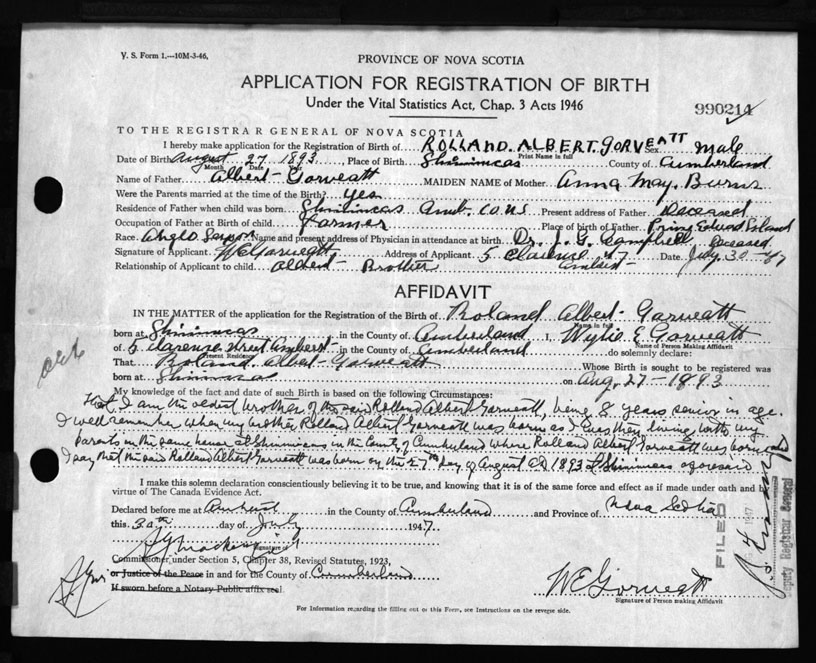 V. S. Form 1.—10M-3-46.
PROVINCE OF NOVA SCOTIA
APPLICATION FOR REGISTRATION OF BIRTH
Under the Vital Statistics Act, Chap. 3 Acts 1946
990214
TO THE REGISTRAR GENERAL OF NOVA SCOTIA
I hereby make application for the Registration of Birth of ROLLAND. ALBERT. GORVEATT Sex Male
Print Name in full
Date of Birth August 27 1893 Place of Birth Shinimicas County of Cumberland
Month Date Year
Name of Father Albert Gorveatt MAIDEN NAME of Mother Anna May. Burns
Were the Parents married at the time of the Birth? Yes
Residence of Father when child was born Shinimicas Present address of Father Deceased
Occupation of Father at Birth of child Farmer Place of birth of Father Prince Edward Island
Race. Anglo Saxon Name and present address of Physician in attendance at birth. Dr. J. G. Campbell deceased
Signature of Applicant. W E Gorveatt Address of Applicant 5 Clarence St Amherst Date July 30-47
Relationship of Applicant to child Albert - Brother
AFFIDAVIT
IN THE MATTER of the application for the Registration of the Birth of Roland Albert Gorveatt
Name in full
born at Shinimicas in the County of Cumberland I, Wylie E Gorveatt
Name of Person Making Affidavit
of 5 Clarence Street Amherst in the County of Cumberland do solemnly declare:
Present Residence
That Roland Albert Gorveatt Whose Birth is sought to be registered was
born at Shinimicas on Aug. 27-1893
My knowledge of the fact and date of such Birth is based on the following Circumstances:
That I am the oldest brother of the said Rolland Albert Gorveatt, being 8 years senior in age.
I well remember when my brother Rolland Albert Gorveatt was born as I was then living with my
parents in the same house at Shinimicas in the County of Cumberland where Rolland Albert Gorveatt was born and
I say that the said Rolland Albert Gorveatt was born on the 27th day of August AD 1893 at Shinimicas aforesaid
I make this solemn declaration conscientiously believing it to be true, and knowing that it is of the same force and effect as if made under oath and by
virtue of The Canada Evidence Act.
Declared before me at Amherst in the County of Cumberland and Province of Nova Scotia
this 30th day of July 1947
Signature
Commissioner under Section 5, Chapter 38, Revised Statutes, 1923,
or Justice of the Peace in and for the County of Cumberland
If sworn before a Notary Public affix seal.
W E Gorveatt
Signature of Person making Affidavit
For Information regarding the filling out of this Form, see Instructions on the reverse side.
FILED
1947
Deputy Registrar General